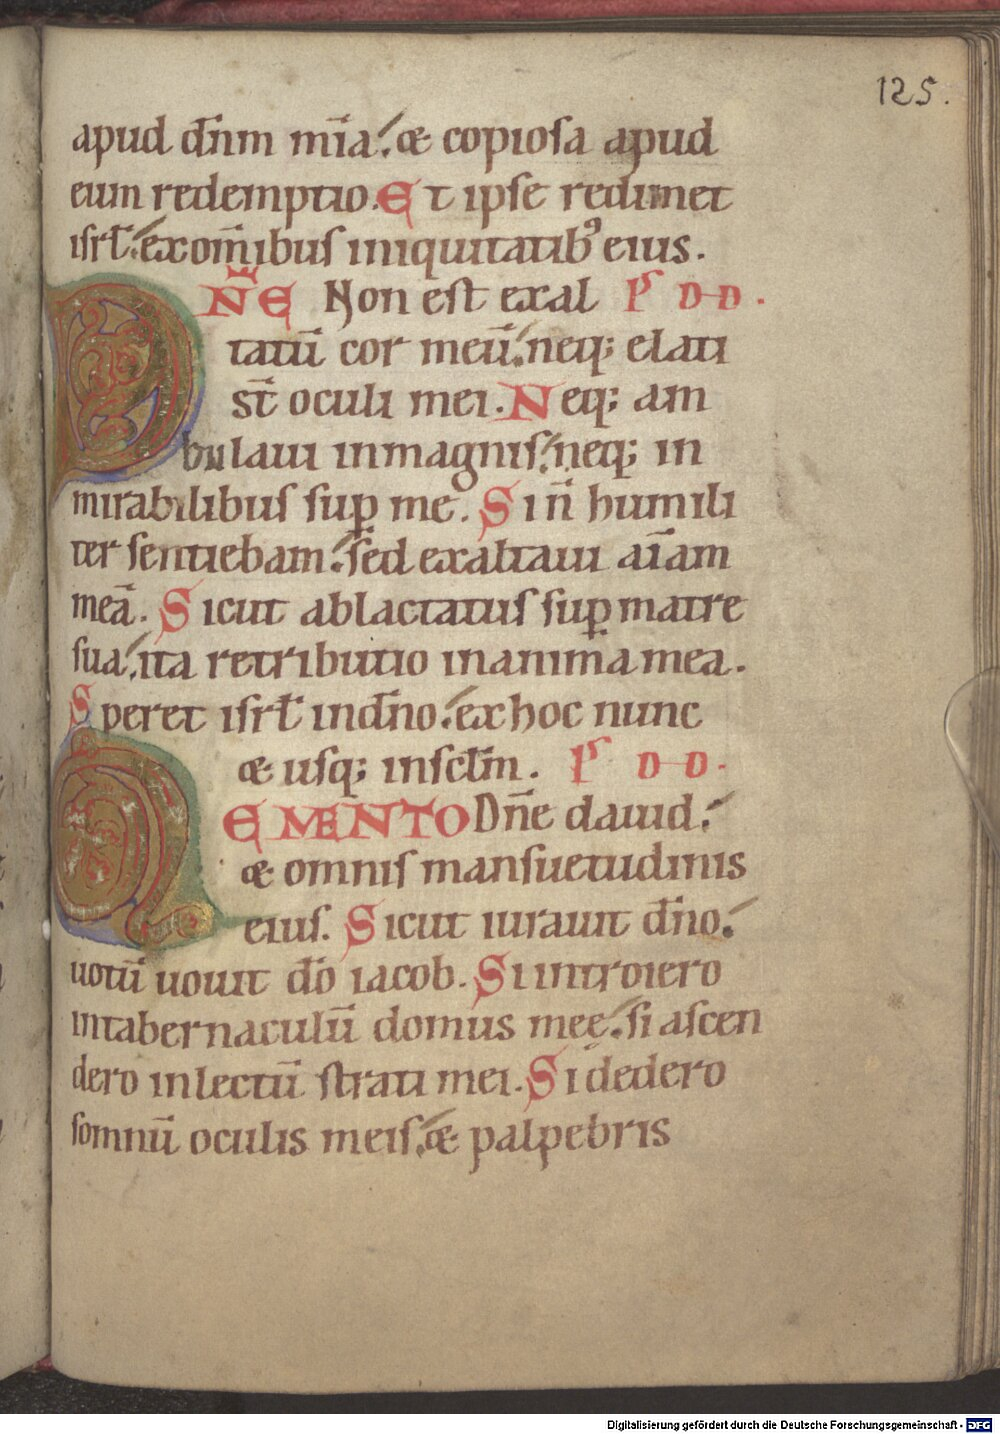 125.
apud dn̄m mīa. & copiosa apud
eum redemptio. Et ipse redimet
isrl̄. ex om̄ibus iniquitatibꝰ eius.
DN̄E Non est exal ps DD.
tatū cor meū. neq; elati
st̄ oculi mei. Neq; am
bulaui in magnis. neq; in
mirabilibus suꝑ me. Si n̄ humili
ter sentiebam. sed exaltaui aīam
meā. Sicut ablactatus suꝑ matre
sua. ita retributio in anima mea.
Speret isrl̄ in dn̄o. ex hoc nunc
& usq; in sclm̄. ps DD.
MEMENTO Dn̄e dauid.
& omnis mansuetudinis
eius. Sicut iurauit dn̄o.
uotū uouit dō iacob. Si introiero
in tabernaculū domus meę. si ascen
dero in lectū strati mei. Si dedero
somnū oculis meis. & palpebris
Digitalisierung gefördert durch die Deutsche Forschungsgemeinschaft - DFG